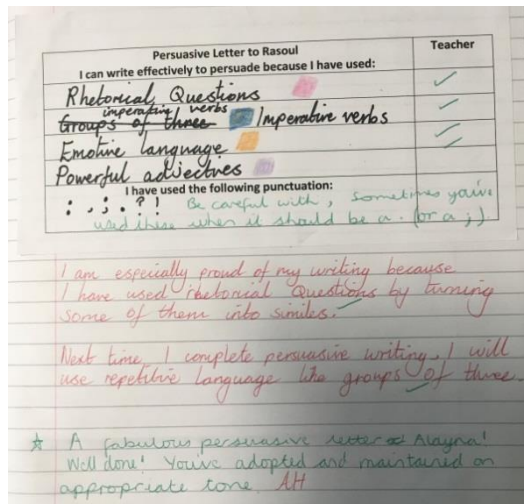 Persuasive Letter to Rasoul
Teacher
I can write effectively to persuade because I have used:
Rhetorical Questions
imperative verbs
Groups of three Imperative verbs
Emotive language
Powerful adjectives
I have used the following punctuation:
: , ; . ? ! Be careful with , sometimes you've
used these when it should be a . (or a ;).
I am especially proud of my writing because
I have used rhetorical Questions by turning
some of them into similes.
Next time I complete persuasive writing, I will
use repetitive language like groups of three.
A fabulous persuasive letter Alayna!
Well done! You've adopted and maintained an
appropriate tone. AH